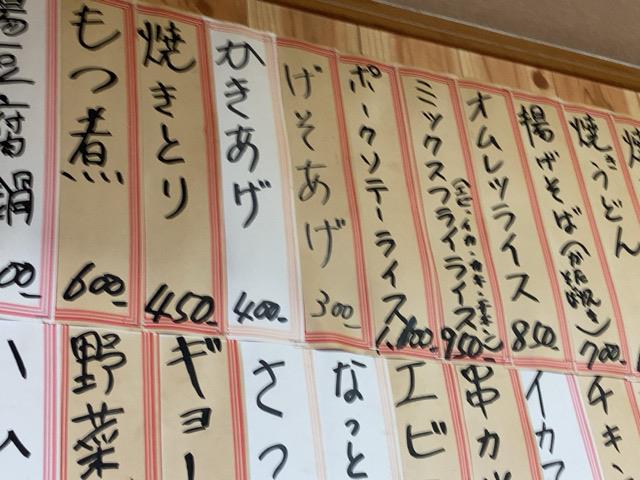 湯豆腐鍋
00-
もつ煮
600-
焼きとり
450-
かきあげ
400-
げそあげ
300-
ポークソテーライス
1,100-
ミックスフライライス
950-
オムレツライス
850-
揚げそば(かた焼きそば)
700-
焼きうどん
野菜
ギョー
さつ
なっと
エビ
串カ
イカフ
チキ